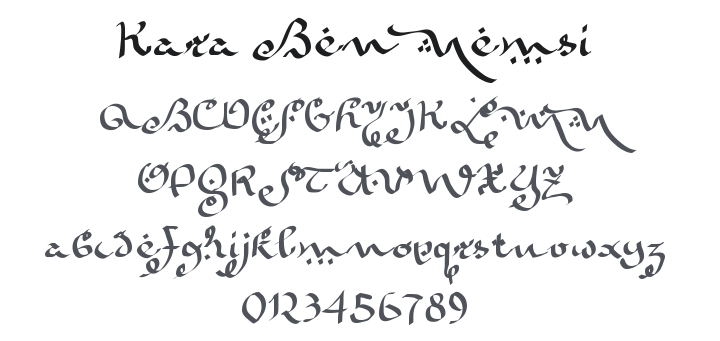 Kara Ben Nemsi
ABCDEFGHIJKLMN
OPQRSTUVWXYZ
abcdefghijklmnopqrstuvwxyz
0123456789